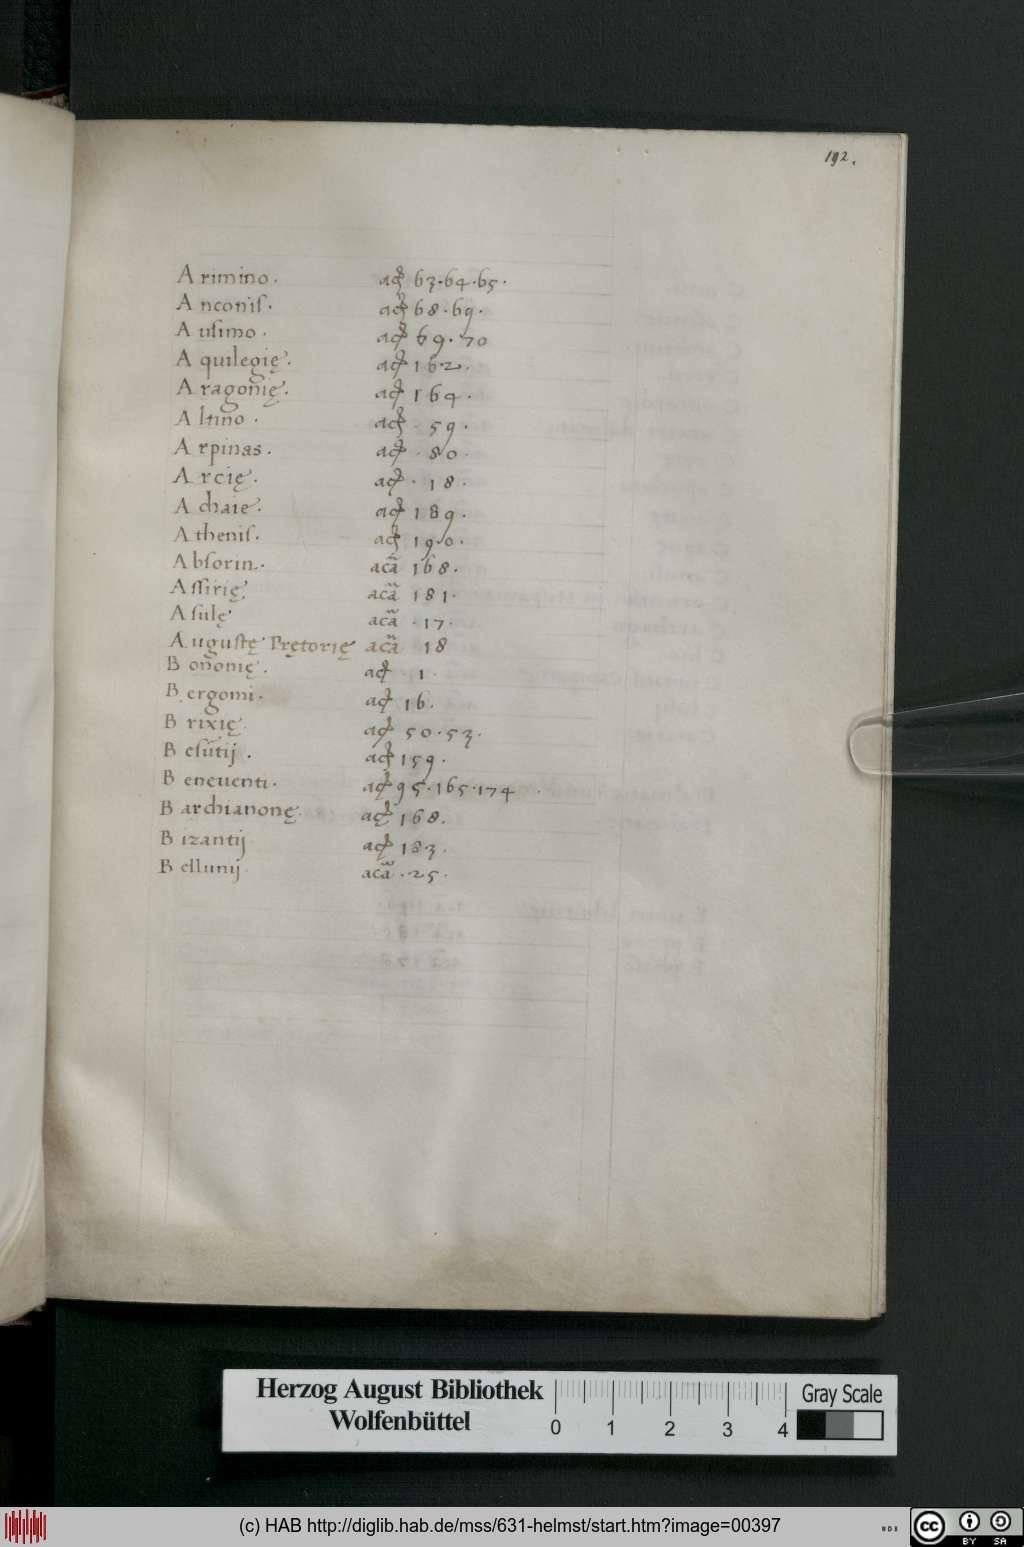 192.
Arimino. acħ 63.64.65.
Anconiſ. acħ 68.69.
Auſimo. acħ 69.70
Aquilegię. acħ 162.
Aragonię. acħ 164.
Altino. acħ. 59.
Arpinas. acħ. 80.
Arcię. acħ. 18.
Achaie. acħ 189.
Athenis. acħ 190.
Abſorin. acã 168.
Aſſirię. acã 181.
Aſulę acã .17.
Auguſtę Pretorię acã 18
Bononię. acħ 1.
Bergomi. acħ 16.
Brixię. acħ 50.53.
Beſutij. acħ 159.
Beneuenti. acħ 95.165.174
Barchianonę. acħ 168.
Bizantij acħ 183.
Bellunij. acã .25.
Herzog August Bibliothek
Wolfenbüttel
0 1 2 3 4
Gray Scale
(c) HAB http://diglib.hab.de/mss/631-helmst/start.htm?image=00397
WDB
cc BY SA